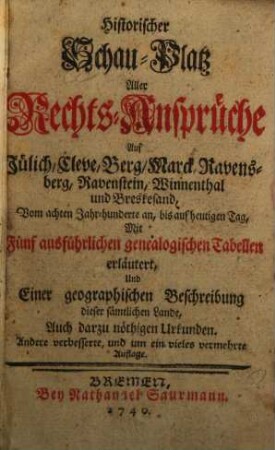 Historischer
Schau-Platz
Aller
Rechts-Ansprüche
Auf
Jülich/Cleve/Berg/Marck/Ravens-
berg/Ravenstein/Winnenthal
und Breskesand,
Vom achten Jahr-hunderte an, bis auf heutigen Tag,
Mit
Fünf ausführlichen genealogischen Tabellen
erläutert,
Und
Einer geographischen Beschreibung
dieser sämtlichen Lande,
Auch darzu nöthigen Urkunden.
Andere verbesserte, und um ein vieles vermehrte
Auflage.
BREMEN,
Bey Nathanael Saurmann.
1740.